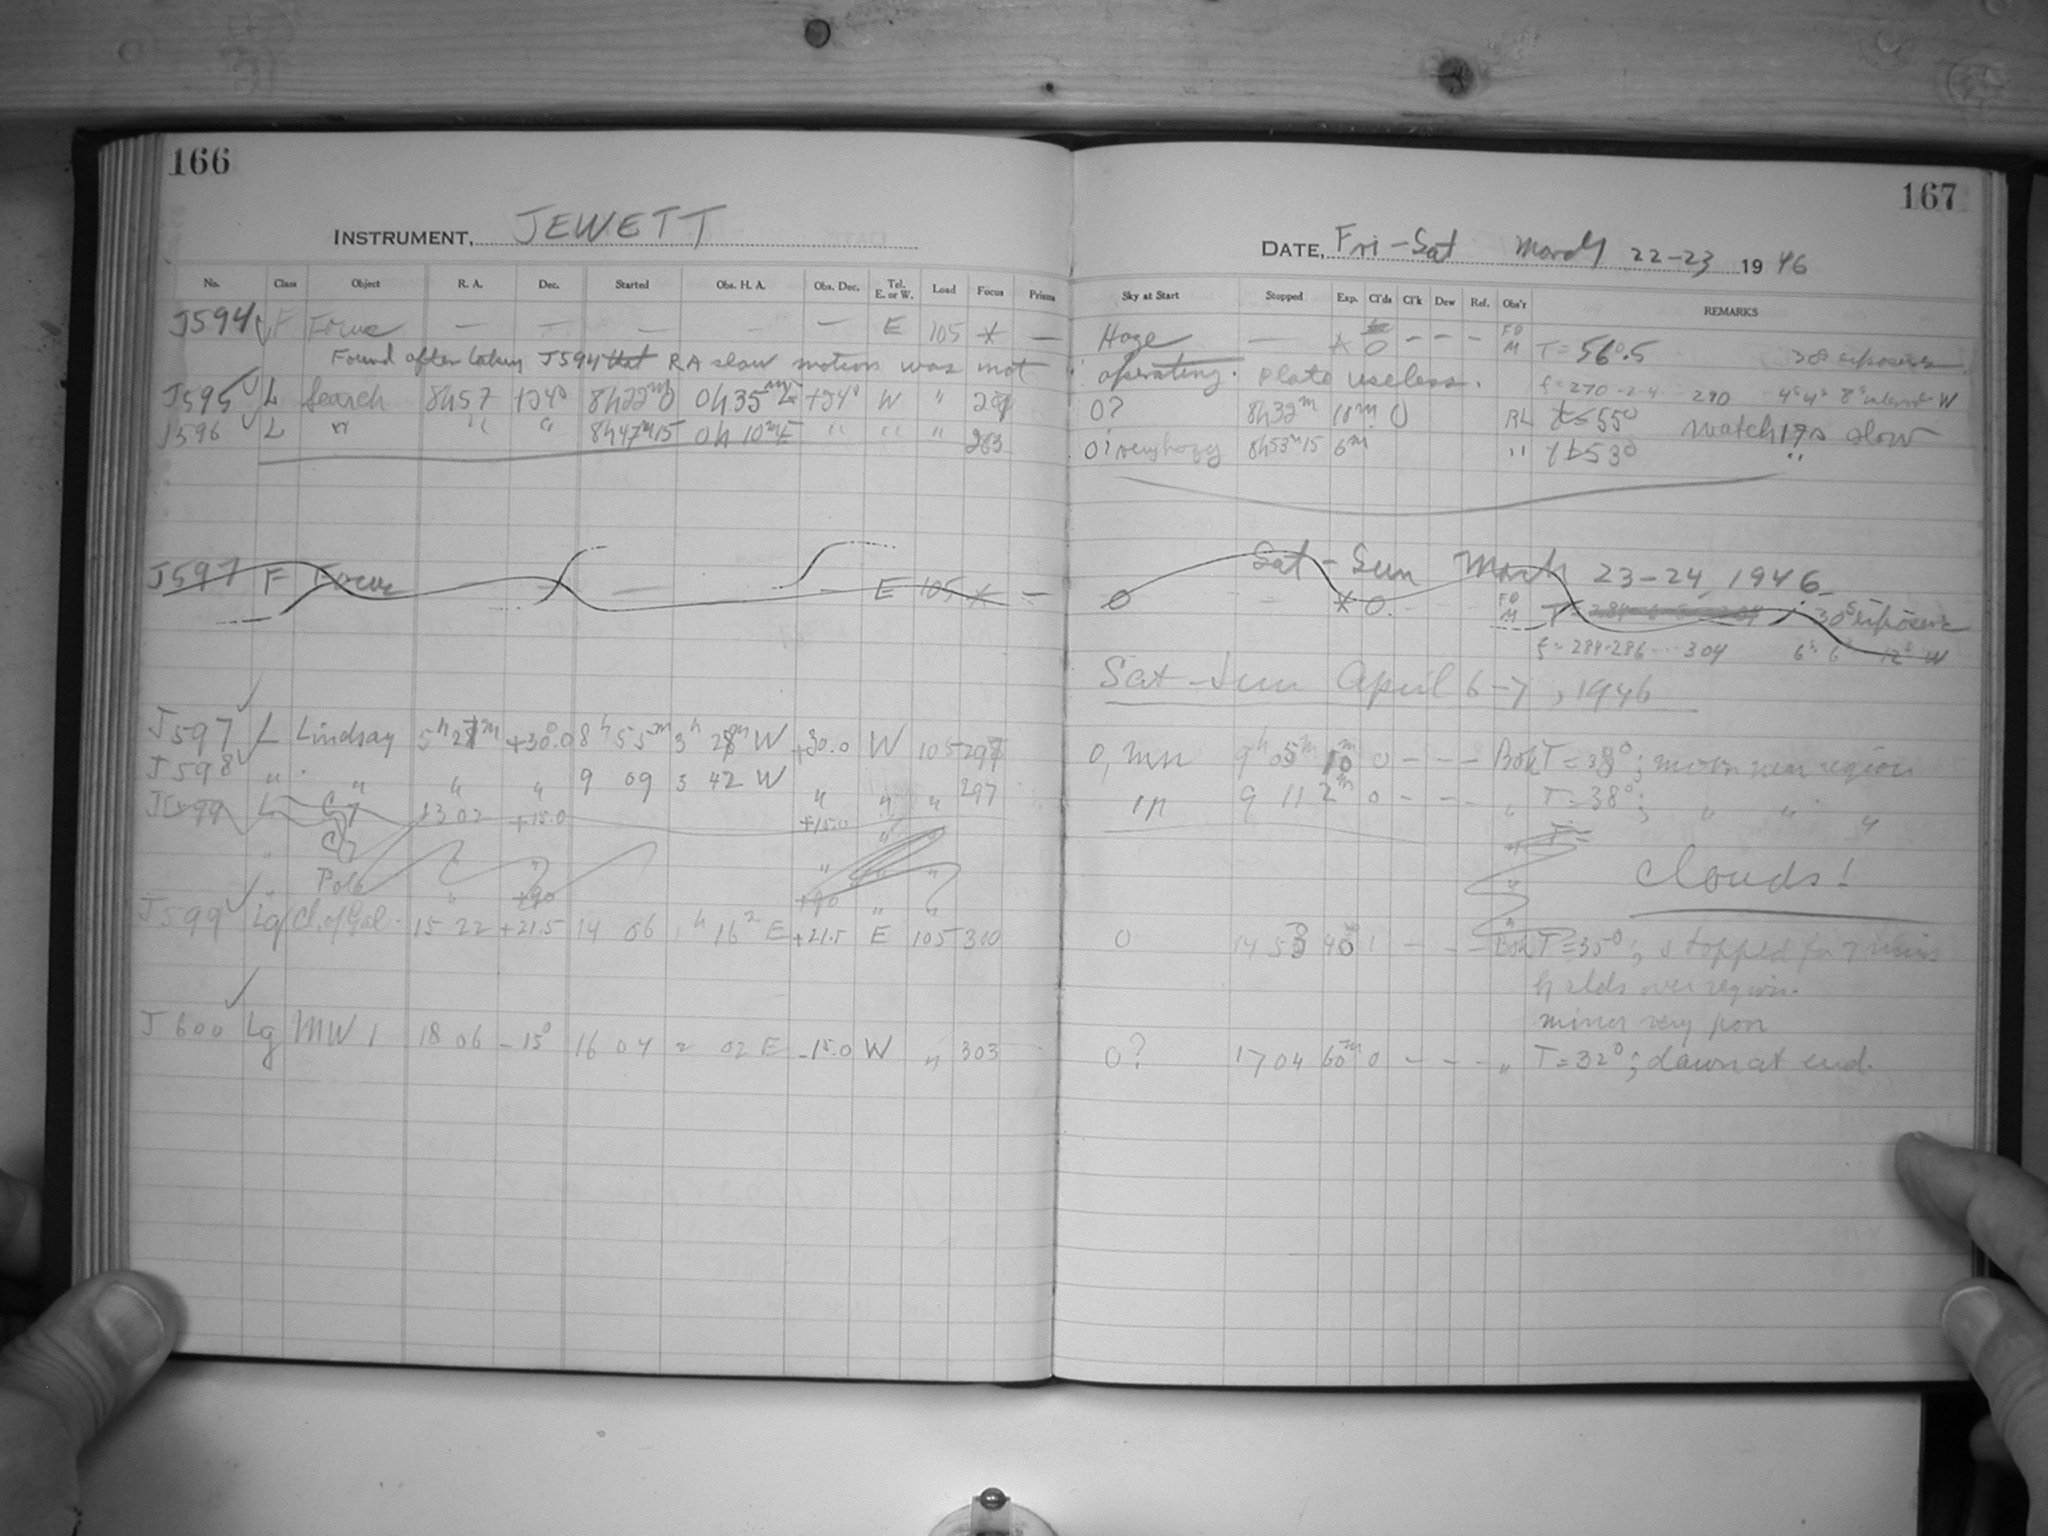 166
INSTRUMENT, JEWETT
No. Class Object R. A. Dec. Started Obs. H. A. Obs. Dec. Tel. E. or W. Load Focus Prisms
J594 F Focus — — — - — E 105 * —
Found after taking J594 that RA slow motion was not
J595 L Search 8h57 +24° 8h22m0 0h35mE +24° W " 281
J596 L " " " 8h47m15 0h 10mE " " " 283
J597 F Focus — E 105 * —
J597 L Lindsay 5h 27m +30.0 8h 55m 3h 28m W +30.0 W 105 297
J598 " " " " 9 09 3 42 W " " " 297
J599 L C7 13 02 +15.0 +15.0 "
" C7 " " "
Pole " +90 +90 " "
J599 Lg Cl. of Gal. 15 22 +21.5 14 06 1h 16 E +21.5 E 105 300
J600 Lg MW 1 18 06 -15° 16 04 2 02 E -15.0 W " 303
167
DATE, Fri-Sat March 22-23 1946
Sky at Start Stopped Exp. Cl'ds Cl'k Dew Ref. Obs'r REMARKS
Haze — * 0 - - - FD M T = 56°.5 30 exposures
operating. Plate useless. f = 270-24 290 4s 4s 8s W
0? 8h32m 10m 0 RL t=55° watch 17s slow
0? very hazy 8h53m15 6m " t=53° "
Sat-Sun March 23-24, 1946
0 — * 0 - - - FD M T = 30s exposure
f = 284-286 ... 304 6s 6s 12s W
Sat-Sun April 6-7, 1946
0, mn 9h 05m 10m 0 - - - Bok T = 38°; moon near region
" 9 11 2m 0 - - - " T = 38°; " " "
clouds!
0 14 53 40 1 - - - Bok T = 35°; stopped for 7 mins
clds over region.
mirror very poor
0? 17 04 60m 0 - - - " T = 32°; dawn at end.